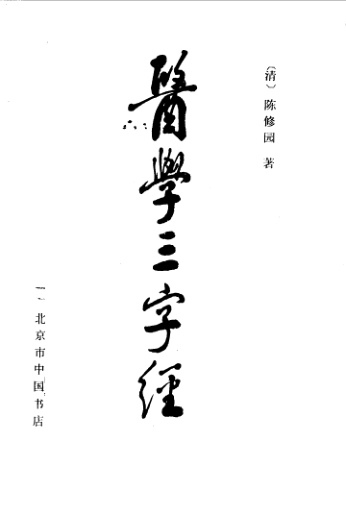 〔清〕陈修园 著
醫學三字經
北京市中国书店